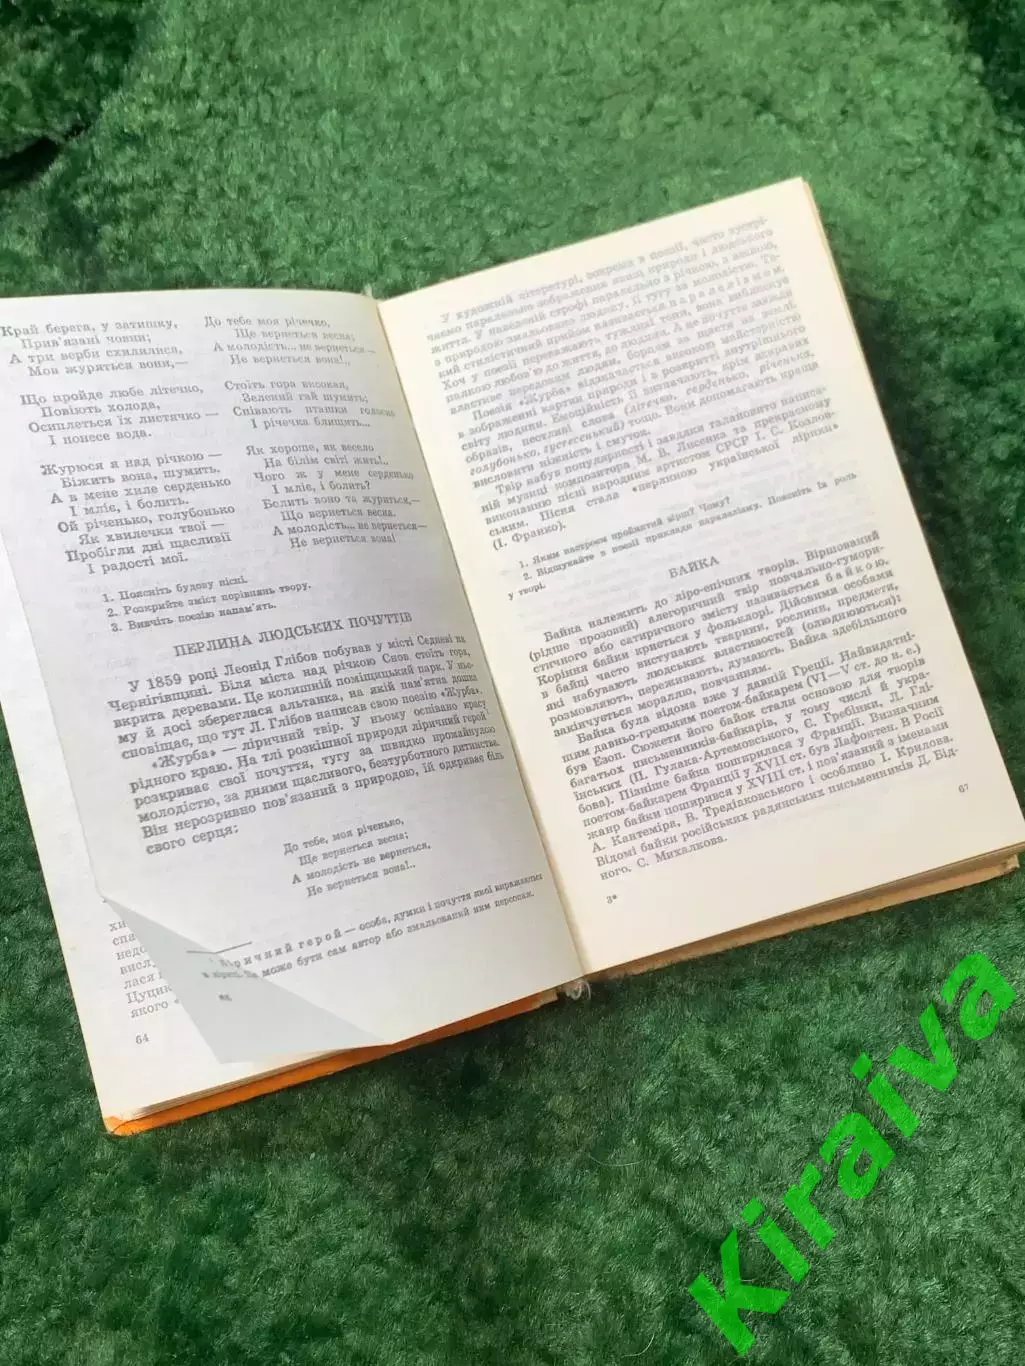 Край берега, у затишку,
Прив'язані човни;
А три верби схилилися,
Мов журяться вони,—
Що пройде любе літечко,
Повіють холода,
Осиплеться їх листячко —
І понесе вода.
Журюся я над річкою —
Біжить вона, шумить,
А в мене хиле серденько
І мліє, і болить.
Ой річенько, голубонько
Як хвилечки твої —
Пробігли дні щасливії
І радості мої.
До тебе моя річечко,
Ще вернеться весна;
А молодість... не вернеться —
Не вернеться вона!..
Стоїть гора високая,
Зелений гай шумить;
Співають пташки голосно
І річечка блищить...
Як хороше, як весело
На білім світі жить!..
Чого ж у мене серденько
І мліє, і болить?
Болить воно та журиться,—
Що вернеться весна,
А молодість... не вернеться—
Не вернеться вона!
1. Поясніть будову пісні.
2. Розкрийте зміст порівнянь твору.
3. Вивчіть поезію напам'ять.
ПЕРЛИНА ЛЮДСЬКИХ ПОЧУТТІВ
У 1859 році Леонід Глібов побував у місті Седневі на
Чернігівщині. Біля міста над річкою Снов стоїть гора,
вкрита деревами. Це колишній поміщицький парк. У ньо-
му й досі збереглася альтанка, на якій пам'ятна дошка
сповіщає, що тут Л. Глібов написав свою поезію «Журба».
«Журба» — ліричний твір. У ньому оспівано красу
рідного краю. На тлі розкішної природи ліричний герой
розкриває свої почуття, тугу за швидко промайнулою
молодістю, за днями щасливого, безтурботного дитинства.
Він нерозривно пов'язаний з природою, їй одкриває біль
свого серця:
До тебе, моя річенько,
Ще вернеться весна;
А молодість не вернеться,
Не вернеться вона!..
ричний герой — особа, думки і почуття якої виражаються
в ліриці. Це може бути сам автор або змальований ним персонаж.
хи
спа
недо
висл
лася
Цуцик
якого «
64
У художній літературі, зокрема в поезії, часто зустрі-
чаємо паралельне зображення явищ природи і людського
життя. У наведеній строфі паралельно з річкою, з весною,
з природою змальовано людину, її тугу за молодістю. Та-
кий стилістичний прийом називається паралелізмом.
Хоч у поезії переважають тужливі тони, вона викликає
палкою любов'ю до життя, до людини. А це почуття завжди
властиве передовим людям, борцям за щастя на землі.
Поезія «Журба» відзначається високою майстерністю
в зображенні картин природи і в розкритті внутрішнього
світу людини. Емоційність її визначають, крім яскравих
образів, пестливі слова (літечко, серденько, річенька,
голубонько, хвилечки) тощо. Вони допомагають краще
висловити ніжність і смуток.
Твір набув популярності і завдяки талановито написа-
ній музиці композитора М. В. Лисенка та прекрасному
виконанню пісні народним артистом СРСР І. С. Козлов-
ським. Пісня стала «перлиною української лірики»
(І. Франко).
1. Яким настроєм пройнятий вірш? Чому?
2. Відшукайте в поезії приклади паралелізму. Поясніть їх роль
у творі.
БАЙКА
Байка належить до ліро-епічних творів. Віршований
(рідше прозовий) алегоричний твір повчально-гумори-
стичного або сатиричного змісту називається байкою.
Коріння байки криється у фольклорі. Дійовими особами
в байці часто виступають тварини, рослини, предмети,
які набувають людських властивостей (одухотворюються):
розмовляють, переживають, думають. Байка здебільшого
закінчується мораллю, повчанням.
Байка була відома вже у давній Греції. Найвидатні-
шим давньо-грецьким поетом-байкарем (VI—V ст. до н. е.)
був Езоп. Сюжети його байок стали основою для творів
багатьох письменників-байкарів, у тому числі й укра-
їнських (П. Гулака-Артемовського, Є. Гребінки, Л. Глі-
бова). Пізніше байка поширилася у Франції. Визначним
поетом-байкарем Франції у XVII ст. був Лафонтен. В Росії
жанр байки поширився у XVIII ст. і пов'язаний з іменами
А. Кантеміра, В. Тредіаковського і особливо І. Крилова.
Відомі байки російських радянських письменників Д. Бід-
ного, С. Михалкова.
3*
67
Kiraiva